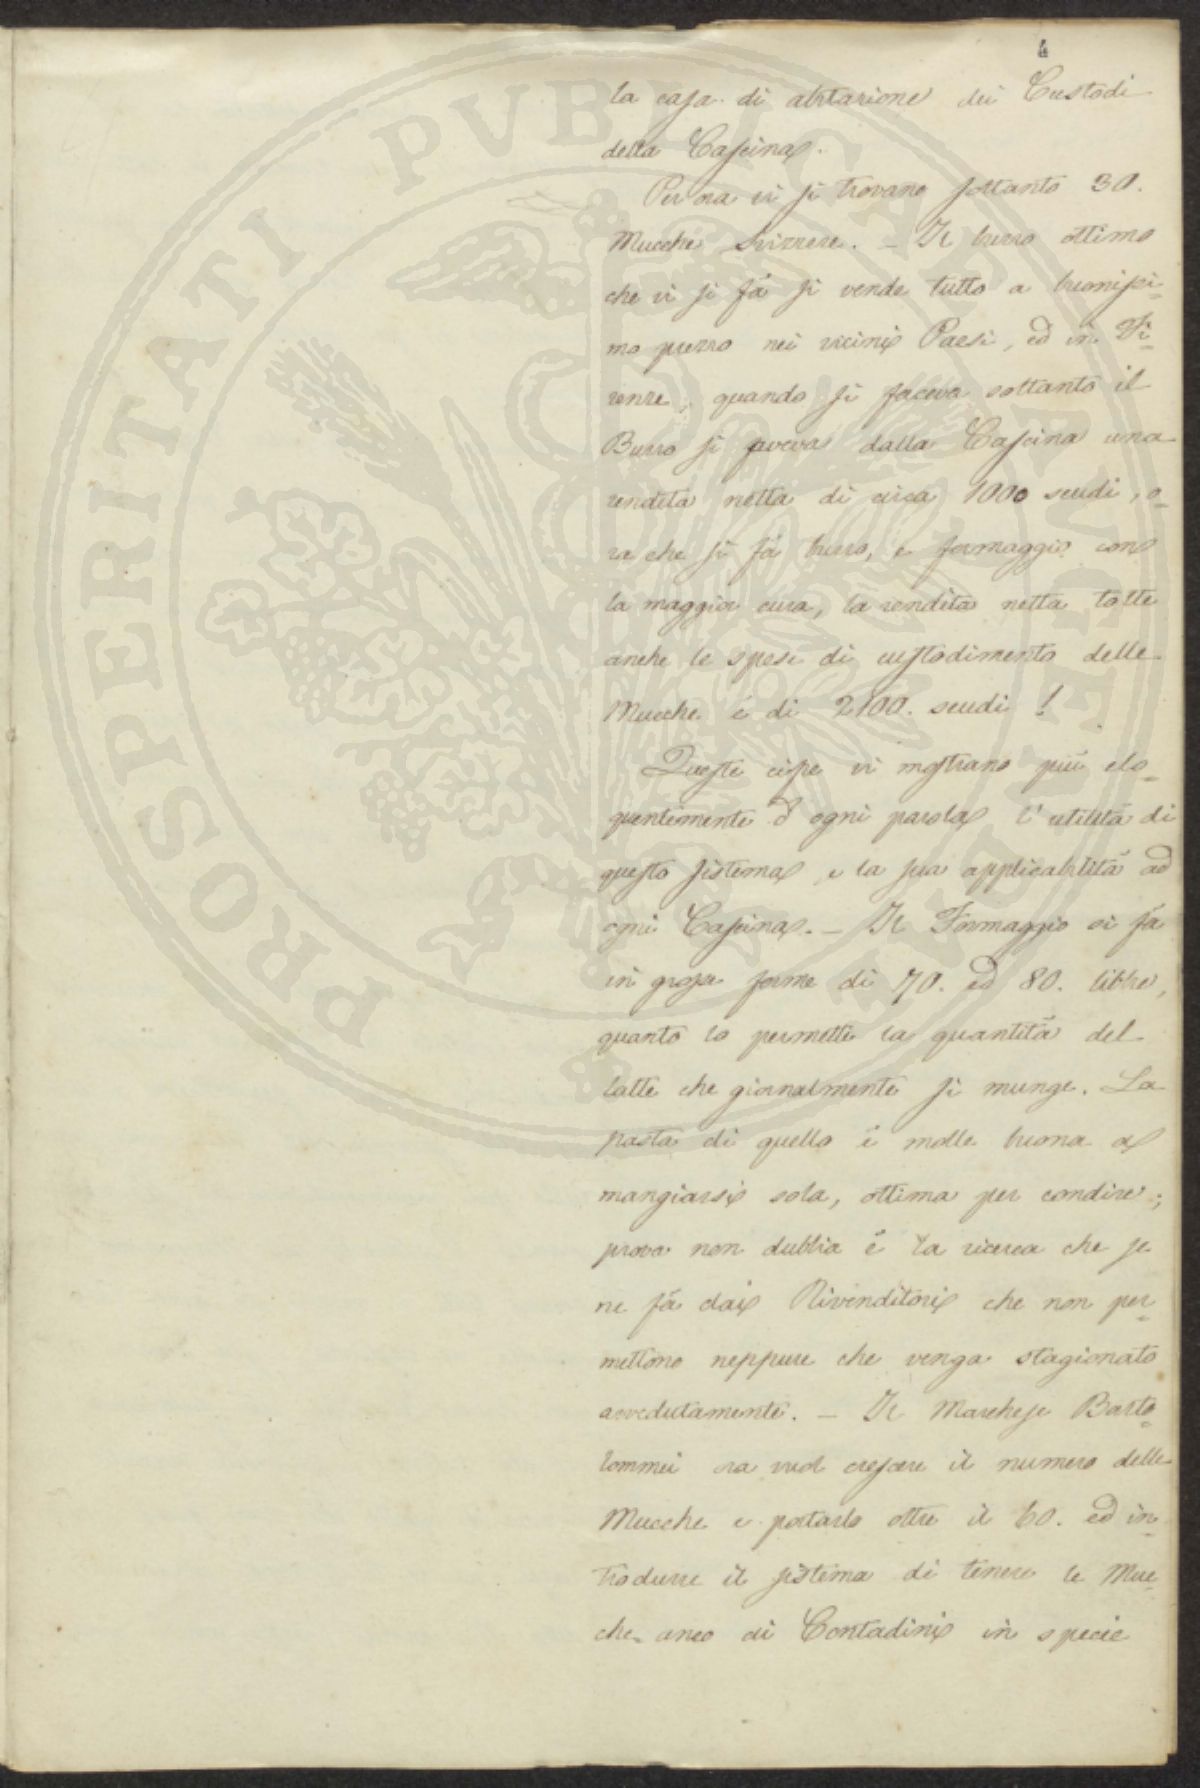 4
la casa di abitazione dei Custodi
della Cascina.
Per ora vi si trovano soltanto 30.
Mucche svizzere. _ Il burro ottimo
che vi si fà si vende tutto a buonissi=
mo prezzo nei vicini Paesi, ed in Fi=
renze, quando si faceva soltanto il
Burro si aveva dalla Cascina una
rendita netta di circa 1000 scudi, o=
ra che si fà burro, e formaggio con
la maggior cura, la rendita netta tolte
anche le spese di custodimento delle
Mucche è di 2100. scudi !
Queste cifre vi mostrano più elo=
quentemente d'ogni parola l'utilità di
questo sistema, e la sua applicabilità ad
ogni Cascina. _ Il Formaggio si fà
in grosse forme di 70. ed 80. libbre,
quanto lo permette la quantità del
latte che giornalmente si munge. La
pasta di quello è molle buona a
mangiarsi sola, ottima per condire;
prova non dubbia è la ricerca che se
ne fà dai Rivenditori che non per=
mettono neppure che venga stagionato
avvedutamente. _ Il Marchese Barto=
lommei ora vuol crescere il numero delle
Mucche e portarlo oltre il 60. ed in=
trodurre il sistema di tenere le Muc=
che anco ai Contadini in specie
PROSPERITATI PVBLICAE AVGENDAE